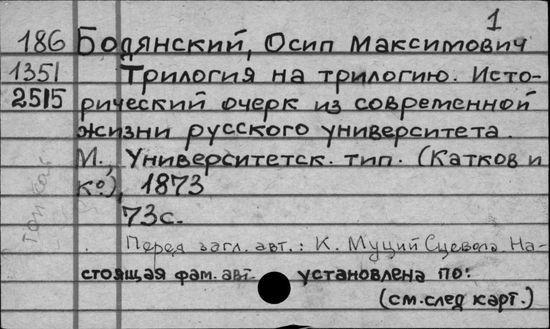 1
186 Бодянский, Осип Максимович
1351 Трилогия на трилогию. Исто-
2515 рический очерк из современной
жизни русского университета.
М., Университетск. тип. (Катков и
К°), 1873
73с.
тонкая
Перед загл. авт.: К. Муций Сцевола. На-
стоящая фам. авт. установлена по:
(см. след карт.)